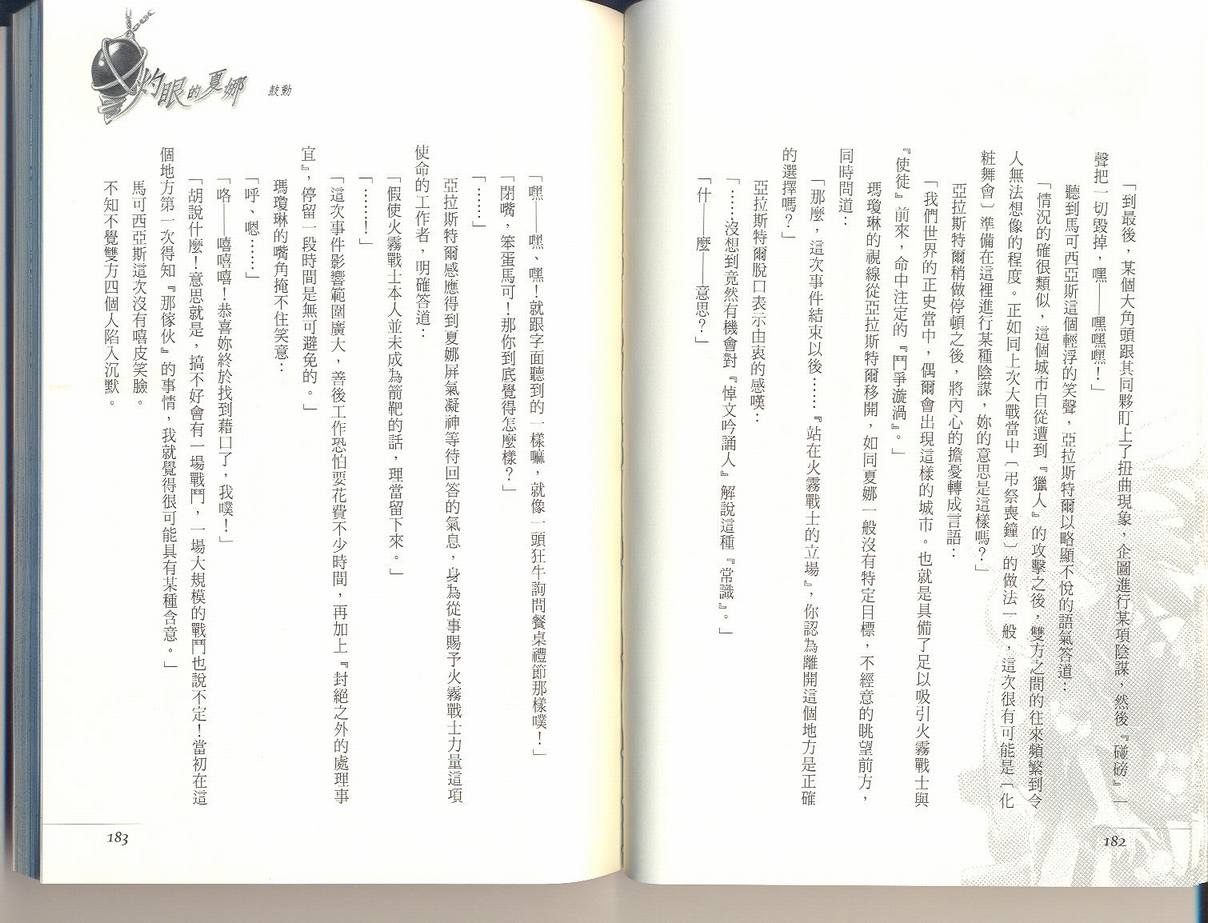 「到最後，某個大角頭跟其同夥盯上了扭曲現象，企圖進行某項陰謀，然後『碰磅』一
聲把一切毀掉，嘿——嘿嘿嘿！」
聽到馬可西亞斯這個輕浮的笑聲，亞拉斯特爾以略顯不悅的語氣答道：
「情況的確很類似，這個城市自從遭到『獵人』的攻擊之後，雙方之間的往來頻繁到令
人無法想像的程度。正如同上次大戰當中〔弔祭喪鐘〕的做法一般，這次很有可能是〔化
粧舞會〕準備在這裡進行某種陰謀，妳的意思是這樣嗎？」
亞拉斯特爾稍做停頓之後，將內心的擔憂轉成言語：
「我們世界的正史當中，偶爾會出現這樣的城市。也就是具備了足以吸引火霧戰士與
『使徒』前來，命中注定的『鬥爭漩渦』。」
瑪瓊琳的視線從亞拉斯特爾移開，如同夏娜一般沒有特定目標，不經意的眺望前方，
同時問道：
「那麼，這次事件結束以後……『站在火霧戰士的立場』，你認為離開這個地方是正確
的選擇嗎？」
亞拉斯特爾脫口表示由衷的感嘆：
「……沒想到竟然有機會對『悼文吟誦人』解說這種『常識』。」
「什——麼——意思？」
182
灼眼的夏娜 鼓動
「嘿——嘿、嘿！就跟字面聽到的一樣嘛，就像一頭狂牛詢問餐桌禮節那樣噗！」
「閉嘴，笨蛋馬可！那你到底覺得怎麼樣？」
「……」
亞拉斯特爾感應得到夏娜屏氣凝神等待回答的氣息，身為從事賜予火霧戰士力量這項
使命的工作者，明確答道：
「假使火霧戰士本人並未成為箭靶的話，理當留下來。」
「………！」
「這次事件影響範圍廣大，善後工作恐怕要花費不少時間，再加上『封絕之外的處理事
宜』，停留一段時間是無可避免的。」
瑪瓊琳的嘴角掩不住笑意：
「呼、嗯……」
「咯——嘻嘻嘻！恭喜妳終於找到藉口了，我噗！」
「胡說什麼！意思就是，搞不好會有一場戰鬥，一場大規模的戰鬥也說不定！當初在這
個地方第一次得知『那傢伙』的事情，我就覺得很可能具有某種含意。」
馬可西亞斯這次沒有嘻皮笑臉。
不知不覺雙方四個人陷入沉默。
183